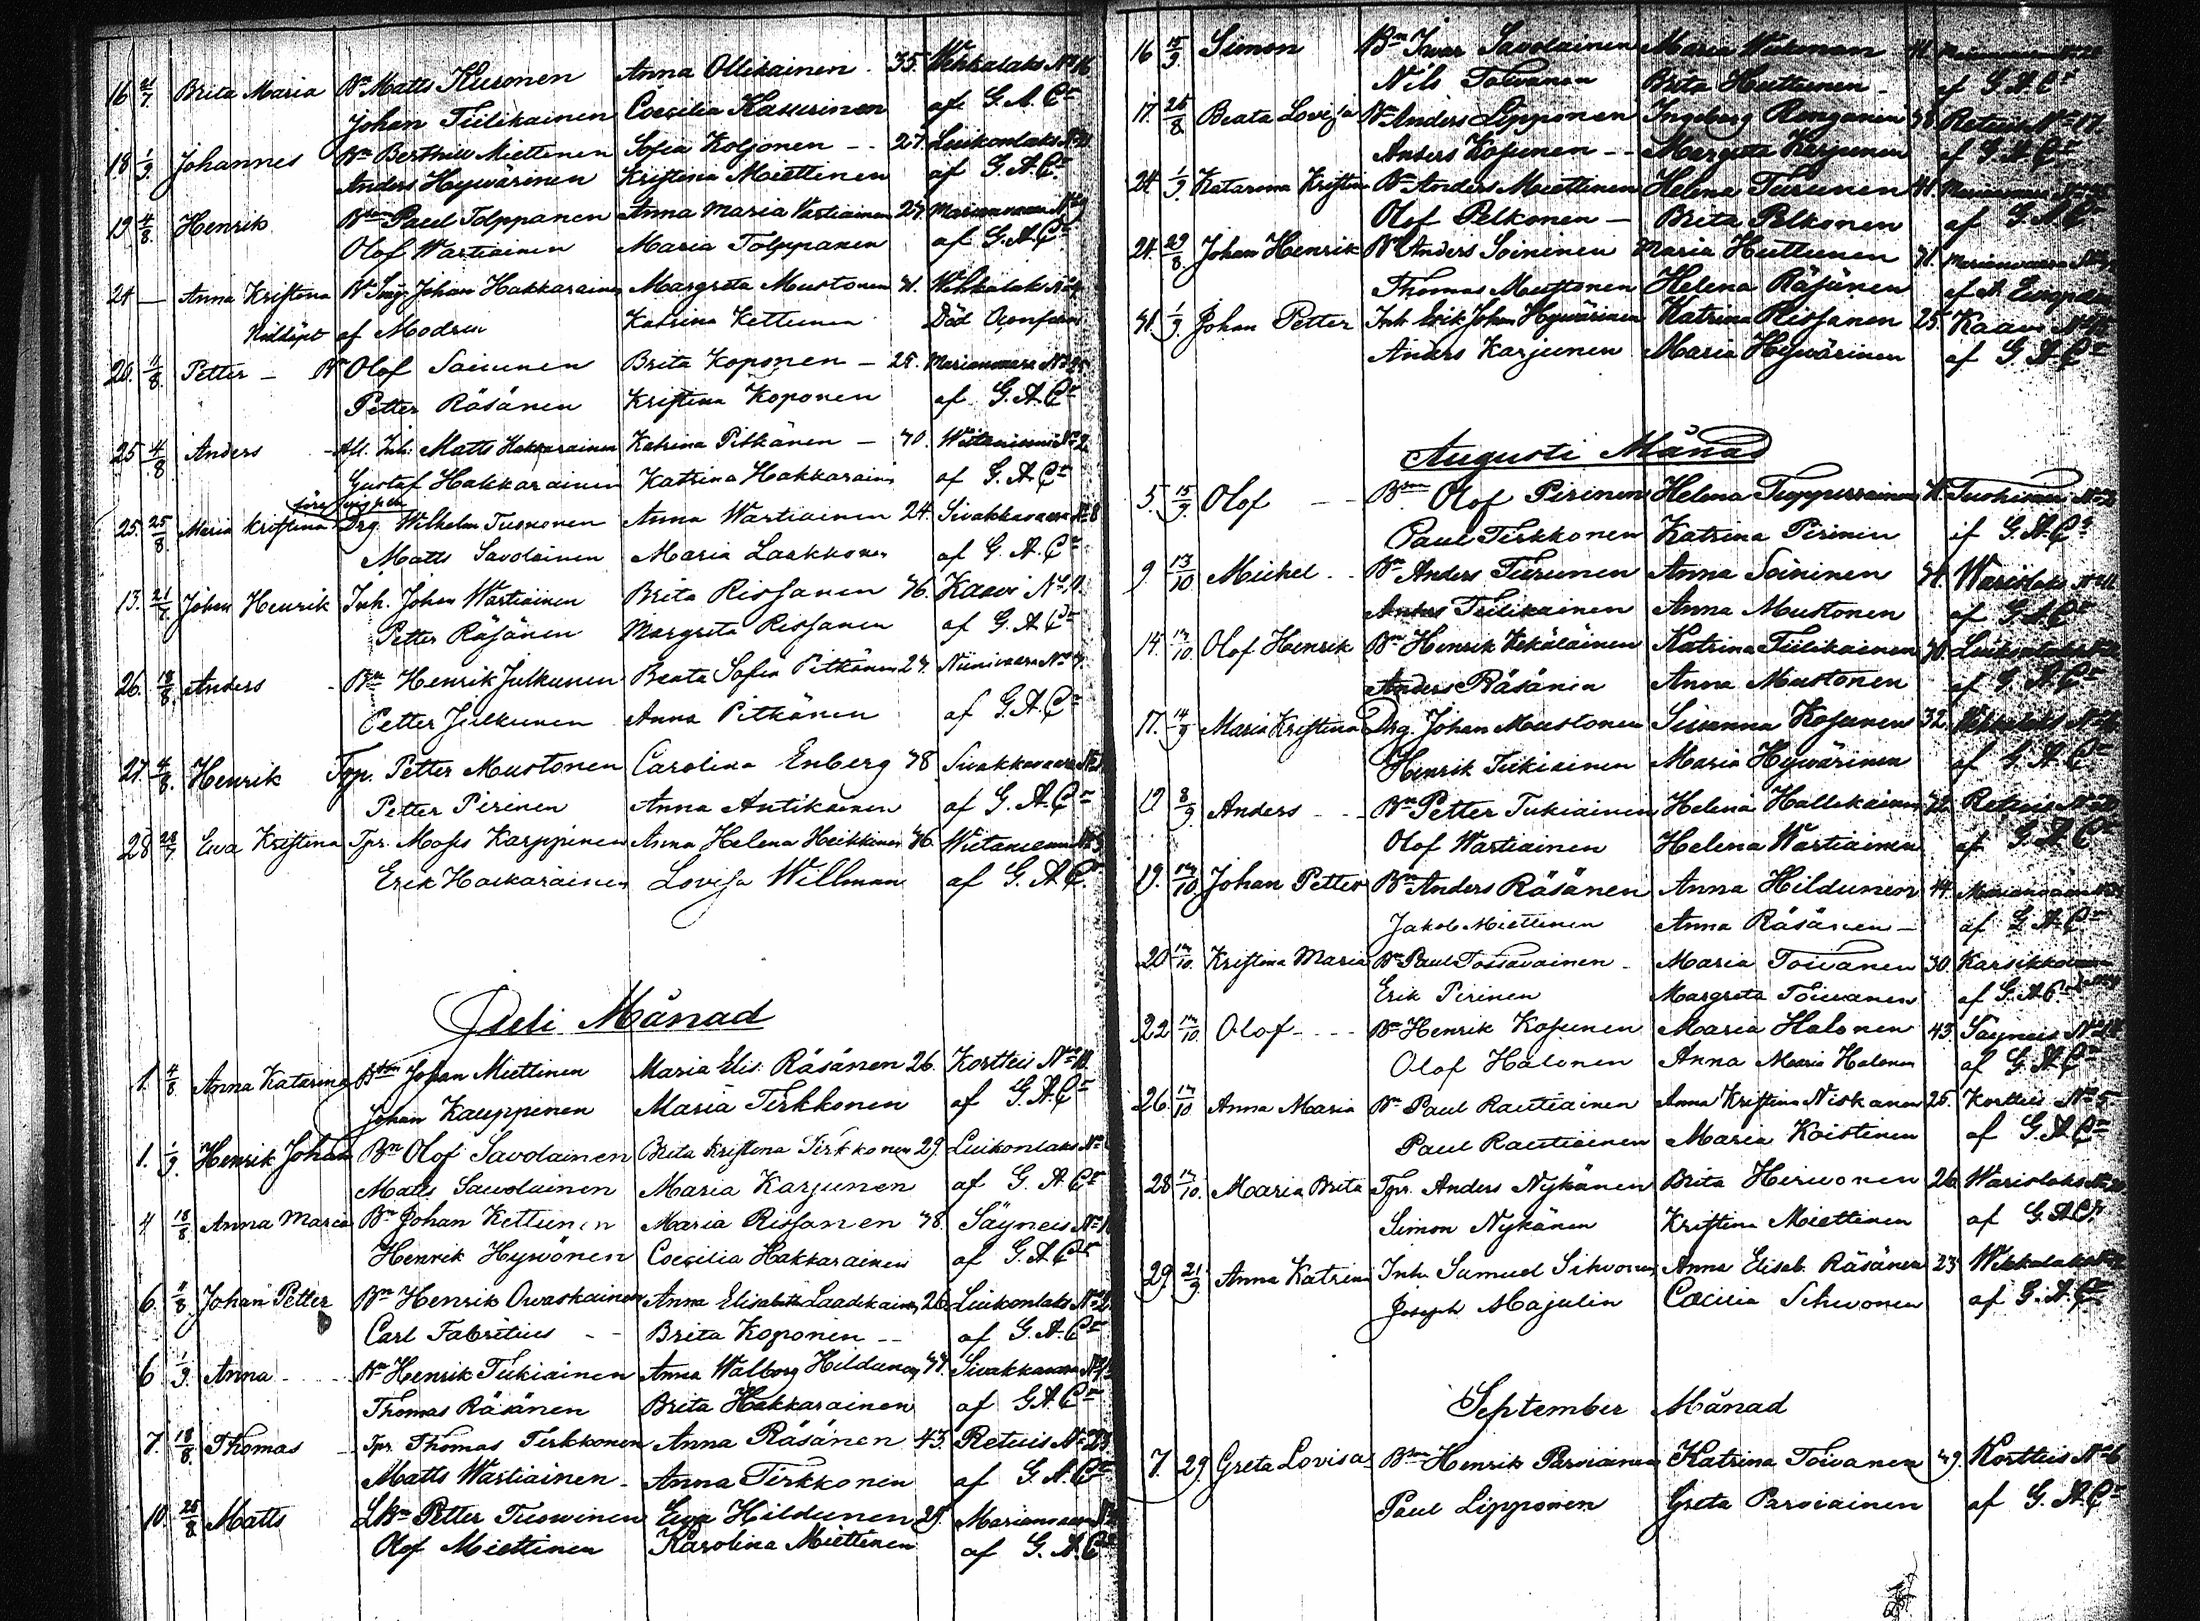 16 2/7 Brita Maria Bn Matts Kuronen Anna Ollikainen 35. Wehkalaks No 16
Johan Tiilikainen Coecilia Kasurinen af G. A. Cr
18 1/9 Johannes Bn Berthill Miettinen Sofia Koljonen 27. Luikonlaks
Anders Hywärinen Kristina Miettinen af G. A. Cr
19 4/8 Henrik Bden Paul Tolppanen Anna Maria Wartiainen 27 Marianvaara
Olof Wartiainen Maria Tolppanen af G. A. Cr
24 — Anna Kristina Bn Johan Hakkarainen Margreta Mustonen 41. Wehkalaks
Nöddöpt af Modren Katrina Kettunen Död
20. 4/8 Petter — Bn Olof Sairinen Brita Koponen — 25. Marianvaara No
Petter Räsänen Kristina Koponen af G. A. Cr
25 4/8 Anders Afl. Inh. Matts Hakkarainen Katrina Pitkänen — 40. No 2
Gustaf Hakkarainen Katrina Hakkarain af G. A. Cr
25. 25/8 Maria Kristina Drg. Wilhelm Tuononen Anna Wartiainen 24. Sivakkavaara No 8
Matts Savolainen Maria Laakkonen af G. A. Cr
13. 21/7 Johan Henrik Inh. Johan Wartiainen Brita Rissanen 36. Kaavi No 11.
Petter Räsänen Margreta Rissanen af G. A. Cr
26. 18/8 Anders Bn Henrik Julkunen Beata Sofia Pitkänen 27. Niinivaara No 7.
Petter Julkunen Anna Pitkänen af G. A. Cr
27. 4/8. Henrik Tpr. Petter Mustonen Carolina Enberg 38 Sivakkavaara
Petter Pirinen Anna Antikainen af G. A. Cr
28 28/7 Ewa Kristina Tpr. Moses Karppinen Anna Helena Heikkinen 36.
Erik Hakkarainen Lovisa Willman af G. A. Cr
Juli Månad
1. 4/8 Anna Katarina Bden Johan Miettinen Maria Elis. Räsänen 26. Kortteis No 11.
Johan Kauppinen Maria Tirkkonen af G. A. Cr
1. 1/9. Henrik Johan Bn Olof Savolainen Brita Kristina Tirkkonen 29. Luikonlaks No
Matts Savolainen Maria Karjunen af G. A. Cr
4 18/8 Anna Maria Bn Johan Kettunen Maria Rissanen 38. Säyneis No
Henrik Hywönen Coecilia Hakkarainen af G. A. Cr
6. 11/8 Johan Petter Bn Henrik Owaskainen Anna Elisabeth Laadikainen 26. Luikonlaks
Carl Fabritius Brita Koponen af G. A. Cr
6 1/9. Anna Bn Henrik Tukiainen Anna Walborg Hildunen 37. Sivakkavaara
Thomas Räsänen Brita Hakkarainen af G. A. Cr
7. 18/8 Thomas Tpr. Thomas Tirkkonen Anna Räsänen 43. Retuis No 23.
Matts Wartiainen Anna Tirkkonen af G. A. Cr
10. 25/8 Matts Petter Tuovinen Ewa Hildunen 29. Marianvaara
Olof Miettinen Karolina Miettinen af G. A. Cr
16 15/9 Simon Bn Iwar Savolainen Maria
Nils Toivanen Brita Huttunen af G. A. Cr
17. 25/8 Beata Lovisa Bn Anders Lipponen Ingeborg Ronganen 38 Retuis No 17.
Anders Kosunen Margreta Karjunen af G. A. Cr
24. 1/9. Katarina Kristina Bn Anders Miettinen Helena Turunen 41.
Olof Pelkonen — Brita Pelkonen af G. A. Cr
24. 29/8. Johan Henrik Bn Anders Soininen Maria Huttunen 31. Marianvaara
Thomas Mustonen Helena Räsänen af
31. 1/9. Johan Petter Inh. Erik Johan Hywärinen Katrina Rissanen 25. Kaavi
Anders Karjunen Maria Hywärinen af G. A. Cr
Augusti Månad
5. 15/9. Olof Bden Olof Pirinen Helena Tuppurainen
Paul Tirkkonen Katrina Pirinen af G. A. Cr
9. 13/10 Michel Bn Anders Turunen Anna Soininen 31. Warislaks
Anders Tiilikainen Anna Mustonen af G. A. Cr
14. 17/10. Olof Henrik Bn Henrik Kekäläinen Katrina Tiilikainen 30. Luikonlaks
Anders Räsänen Anna Mustonen af G. A. Cr
17. 14/9 Maria Kristina Drg. Johan Mustonen Susanna Kosunen 32
Henrik Tukiainen Maria Hywärinen af G. A. Cr
19 8/9 Anders Bn Petter Tukiainen Helena Hallikainen 32. Retuis
Olof Wartiainen Helena Wartiainen af G. A. Cr
19. 17/10 Johan Petter Bn Anders Räsänen Anna Hildunen 44. Marianvaara
Jakob Miettinen Anna Räsänen — af G. A. Cr
20 17/10. Kristina Maria Bn Paul Tossavainen Maria Toivanen 30. Karsikko
Erik Pirinen Margreta Toivanen af G. A. Cr
22 17/10 Olof Bn Henrik Kosunen Maria Halonen 43. Säyneis
Olof Halonen Anna Maria Halonen af G. A. Cr
26. 17/10 Anna Maria Bn Paul Rautiainen Anna Kristina Niskanen 25. Kortteis No 5
Paul Rautiainen Maria Koistinen af G. A. Cr
28 17/10. Maria Brita Tpr. Anders Nykänen Brita Hirvonen 26. Warislaks
Simon Nykänen Kristina Miettinen af G. A. Cr
29. 21/9. Anna Katrina Inh. Samuel Sihvonen Anna Elisab. Räsänen 23 Wehkalaks
Joseph Majulin Coecilia Sihvonen af G. A. Cr
September Månad
7. 29 Greta Lovisa Bden Henrik Parviainen Katrina Toivanen 39. Kortteis No 6
Paul Lipponen Greta Parviainen af G. A. Cr